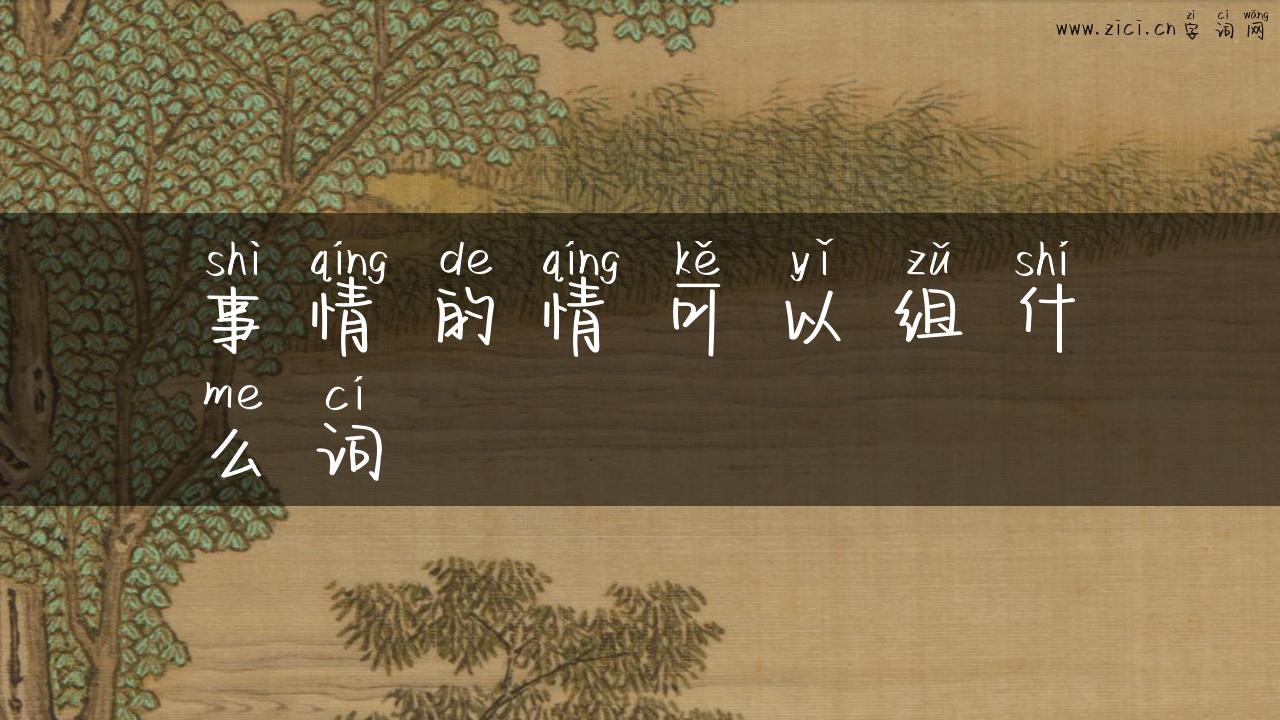 zì cí wǎng
www.zici.cn 字 词 网
shì qíng de qíng kě yǐ zǔ shí
事 情 的 情 可 以 组 什
me cí
么 词